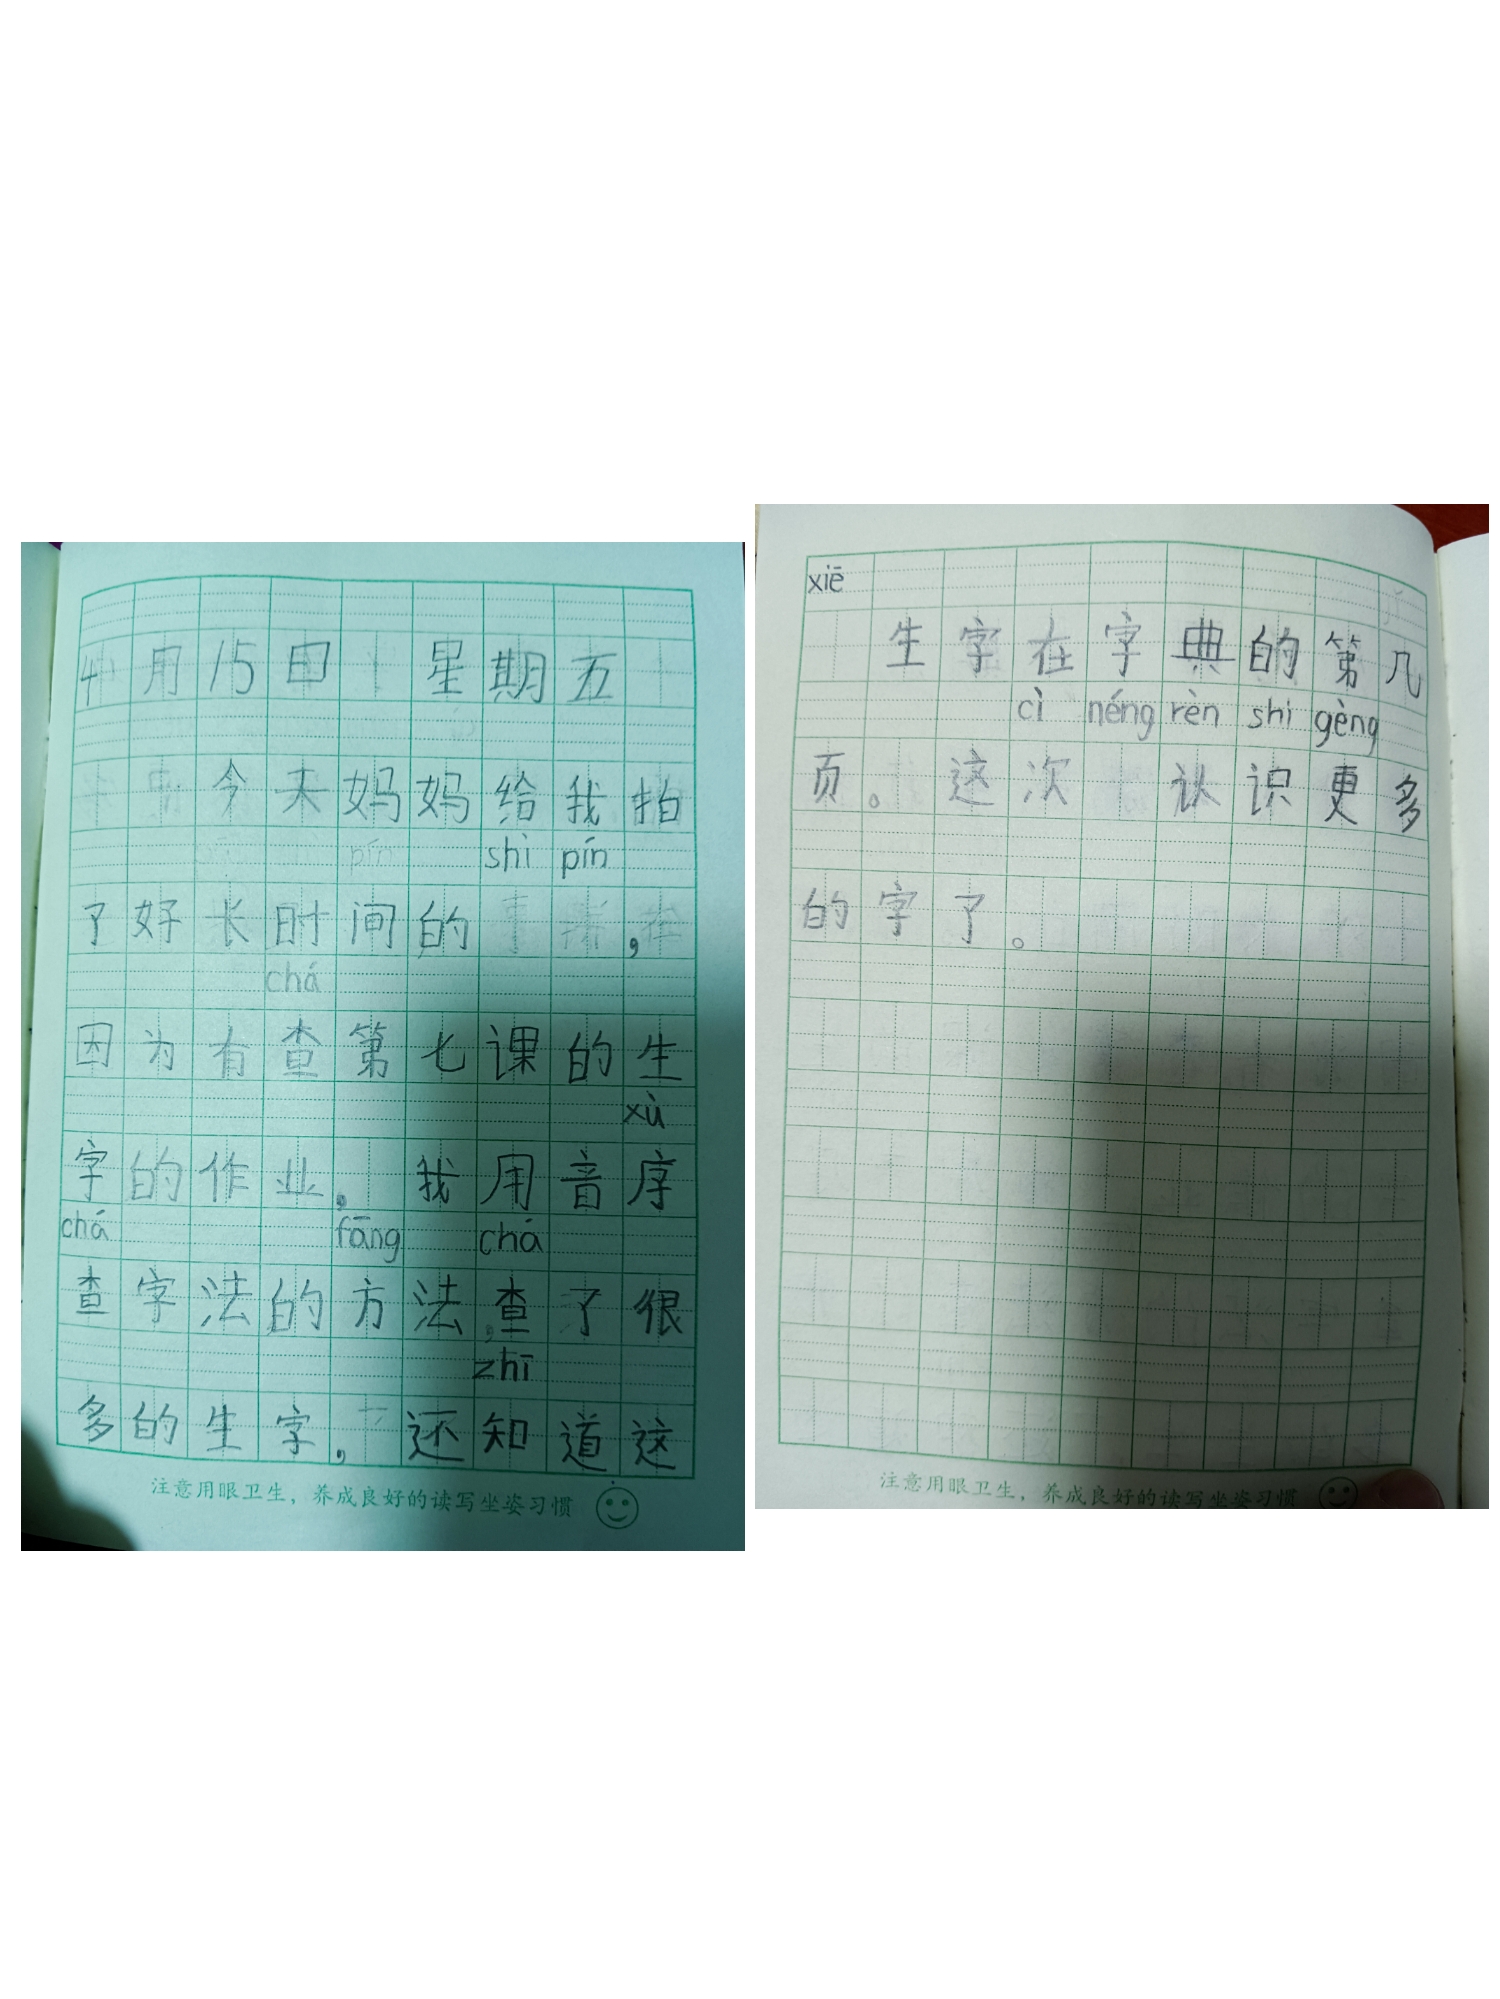 4月15日 星期五
今天妈妈给我拍
shì pín
了好长时间的 ，
chá
因为有查第七课的生
xù
字的作业，我用音序
chá fāng chá
查字法的方法，查了很
zhī
多的生字，还知道这
注意用眼卫生，养成良好的读写坐姿习惯
xiē
生字在字典的第几
cì néng rèn shi gèng
页。这次 认识更多
的字了。
注意用眼卫生，养成良好的读写坐姿习惯